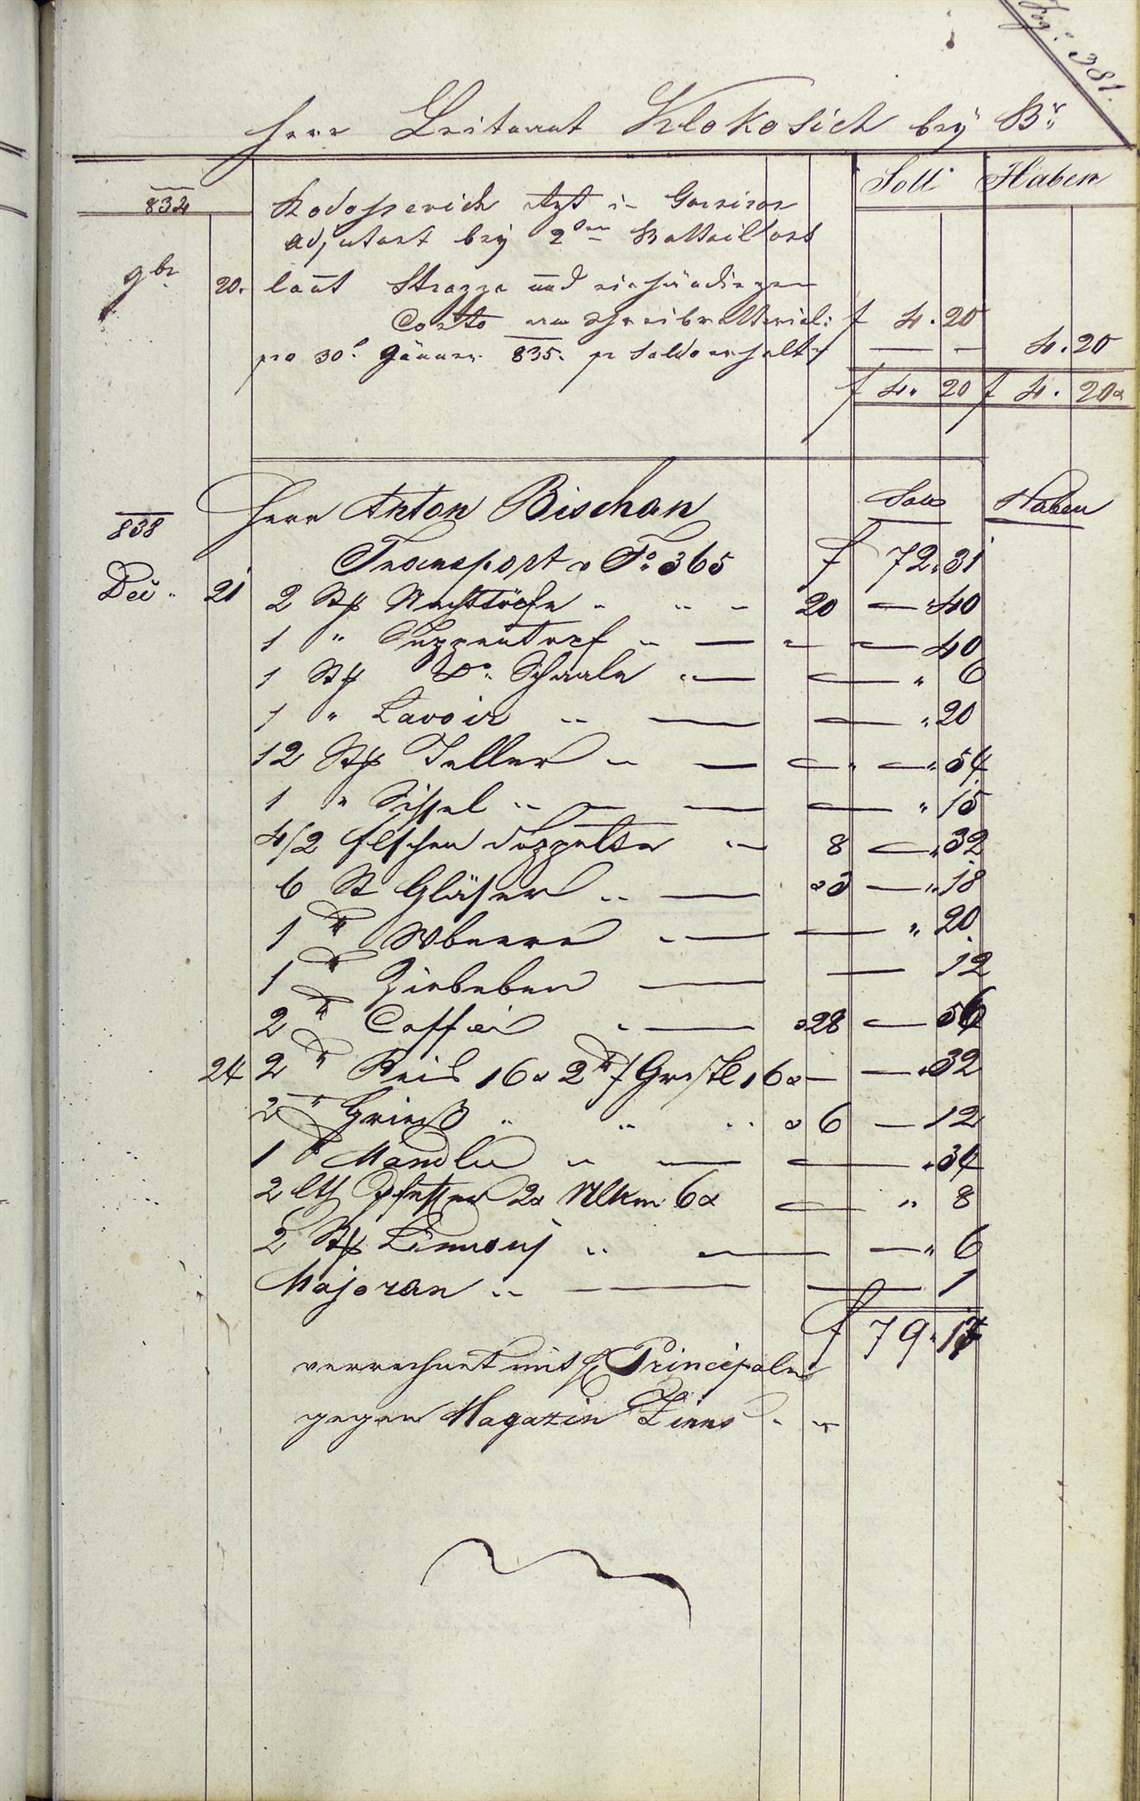 Fog: 381.
Herr Leitenant Klokosich bey Br
Soll Haben
832 Rodosserich itzt in Garnison
Adjutant bey 2ten Battaillons
9br 20. laut Strazza und einhändigen
Conto an Schreibmaterial: f 4.20
pro 30t Jänner 835. pr Saldo erhalt 4.20
f 4.20 f 4.20
838 Herr Anton Bischan Soll Haben
Transport v Fo 365 f 72.31
Dec 21 2 St Nachttöpfe 20 — 40
1 " Suppentopf — 40
1 St Do Schaale — " 6
1 " Lavoir — " 20
12 St Teller — 54
1 " Schssel — " 15
4/2 flschen doppelte 8 — 32
6 St Gläser 3 — 18
1 — " 20
1 Ziebeben — 12
2 Caffei 28 — 56
24 2 Reis 16 2 Grstl 16 — 32
2 Gries 6 — 12
1 Mandln — " 34
2 lth Pfeffer 2 6 — " 8
2 St Limonij — " 6
Majoran — 1
f 79.17
verrechnet mit H Principalen
gegen Magazin Zinns